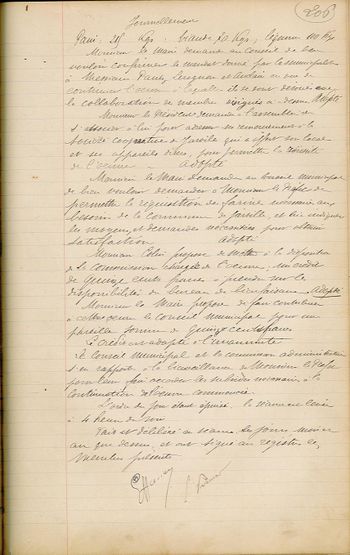 206
Journellement
Pain: 25 Kgs. Viande 20 Kgs, légumes 100 Kgs
Monsieur le Maire demande au conseil de bien
vouloir confirmer le mandat donné par la municipalité
à Messieurs et en vue de
continuer l'œuvre à laquelle ils se sont dévoués avec
la collaboration de membres désignés ci-dessus Adopté
Monsieur le Président demande à l'assemblée de
s'associer à lui pour adresser ses remerciements à la
société coopérative de qui a offert son local
et ses appareils pour permettre la réussite
de l'œuvre adopté
Monsieur le Maire demande au conseil municipal
de bien vouloir demander à Monsieur le Préfet de
permettre la réquisition de farine nécessaire aux
besoins de la commune de et lui indiquer
les moyens et demandes nécessaires pour obtenir
satisfaction adopté
Monsieur Colin propose de mettre à la disposition
de la commission chargée de l'œuvre, un crédit
de Quinze cents francs à prendre sur les
disponibilités du bureau de bienfaisance Adopté
Monsieur le Maire propose de faire contribuer
à cette œuvre le Conseil municipal pour une
pareille somme de Quinze cents francs
Ce crédit est adopté à l'unanimité
Le Conseil municipal et la commission administrative
s'en rapporte à la bienveillance de Monsieur le Préfet
pour leur faire accorder les subsides nécessaires à la
continuation de l'œuvre commencée.
L'ordre du jour étant épuisé, la séance est levée
à heures du soir
Fait et délibéré en séance les jours, mois et
an que dessus, et ont signé au registre les
membres présents